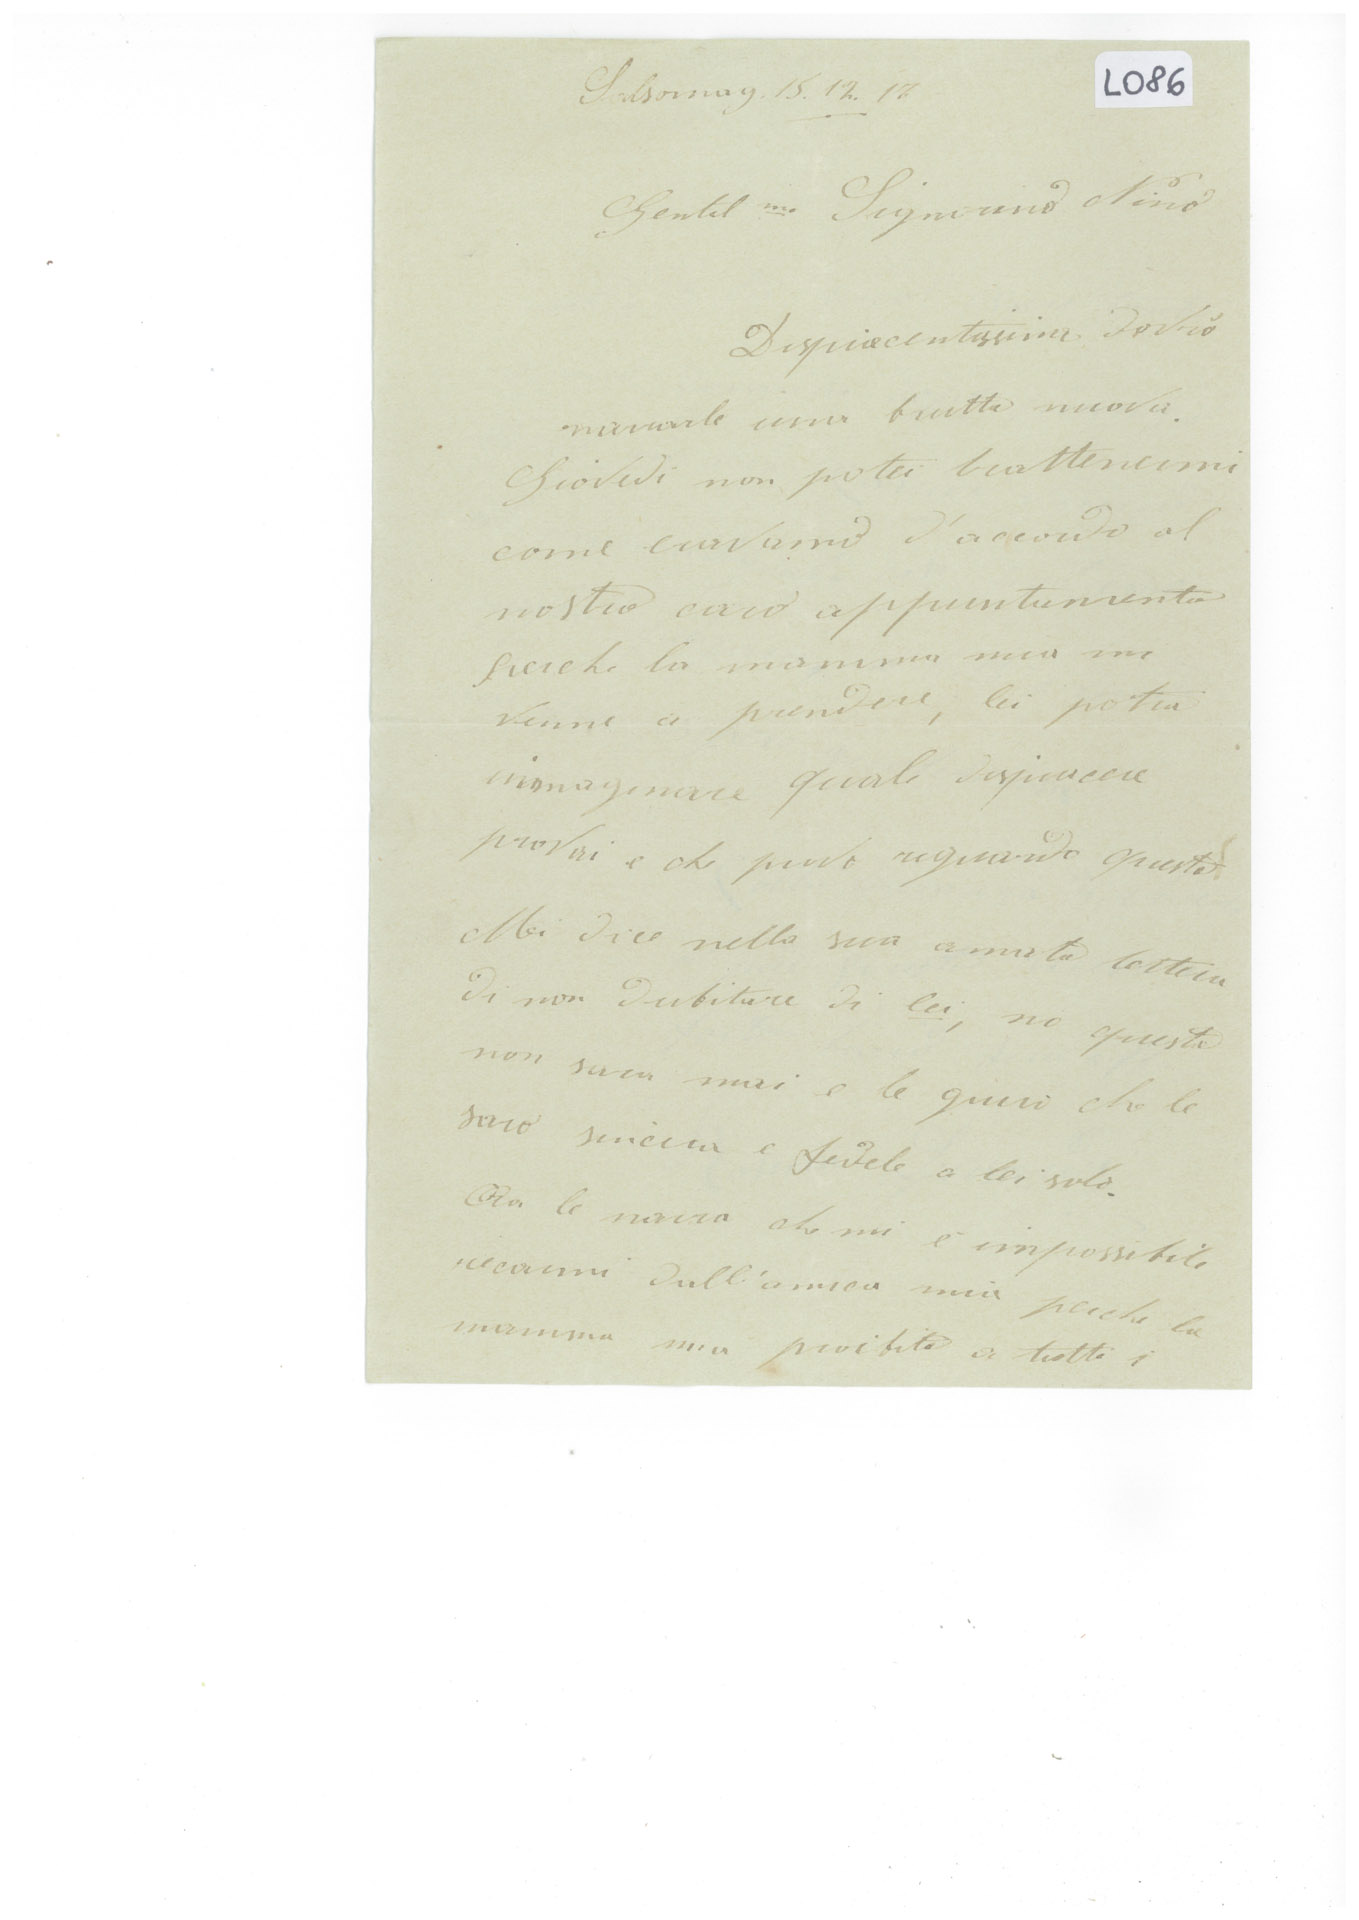 L086
Salsomag. 15. 12. 12
Gentil mo Signorino Nino
Dispiacentissima dovrò
narrarle una brutta nuova.
Giovedì non potei trattenermi
come eravamo d'accordo al
nostro caro appuntamento
perchè la mamma mia mi
venne a prendere, lei potrà
immaginare quale dispiacere
provai e che provo riguardo questo
Mi dice nella sua amata lettera
di non dubitare di lei, no questo
non sara mai e le giuro che le
sarò sincera e fedele a lei solo.
Ora le narro che mi è impossibile
recarmi dall'amica mia perche la
mamma mia proibito a tutti i